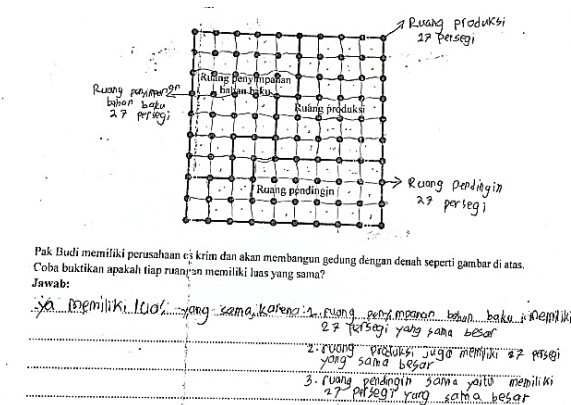 Ruang produksi
27 persegi
Ruang penyimpanan
bahan baku
Ruang penyimpanan
bahan baku
27 persegi
Ruang produksi
Ruang pendingin
Ruang Pendingin
27 persegi
Pak Budi memiliki perusahaan es krim dan akan membangun gedung dengan denah seperti gambar di atas.
Coba buktikan apakah tiap ruangan memiliki luas yang sama?
Jawab:
ya memiliki luas yang sama, karena: 1. ruang penyimpanan bahan baku memiliki
27 persegi yang sama besar
2. ruang produksi juga memiliki 27 persegi
yang sama besar
3. ruang pendingin sama yaitu memiliki
27 persegi yang sama besar